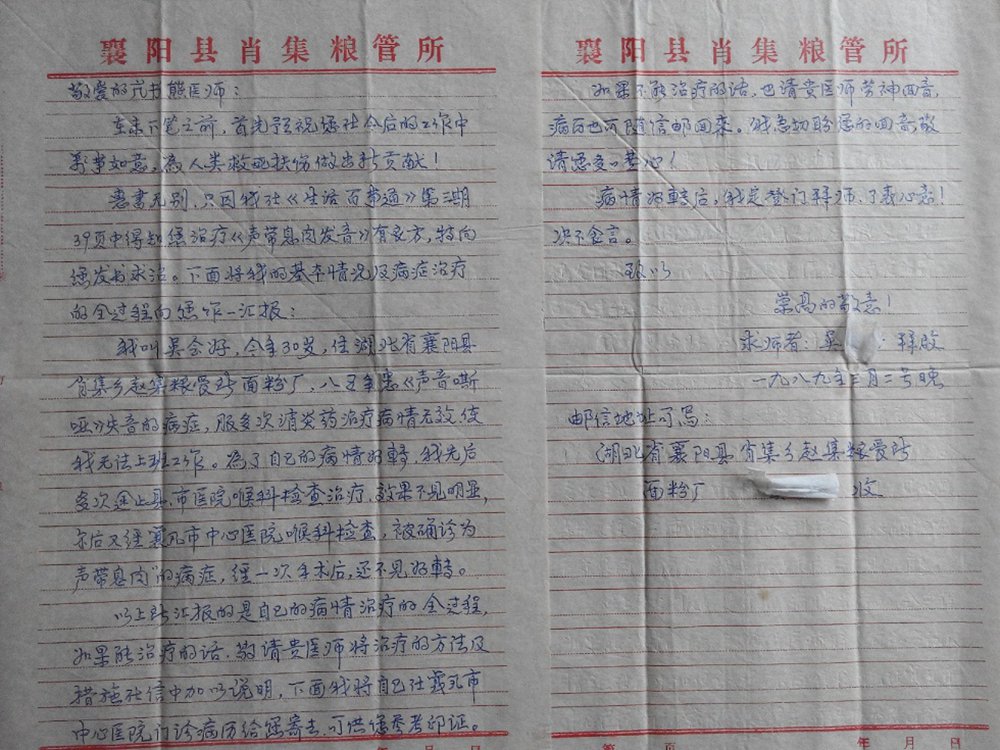 襄阳县肖集粮管所
敬爱的 熊医师:
在未下笔之前,首先预祝您在今后的工作中
万事如意,為人类救死扶伤做出新贡献!
惠書无别,只因我在《生活百事通》第三期
39页中得知您治疗《声带息肉发音》有良方,特向
您发书求治。下面将我的基本情况及病症治疗
的全过程向您作一汇报:
我叫吴会好,今年30岁,住湖北省襄阳县
肖集乡赵集粮管站面粉厂,八五年患《声音嘶
哑》失音的病症,服多次消炎药治疗病情无效,使
我无法上班工作。為了自己的病情好轉,我先后
多次送上县、市医院喉科检查治疗,效果不见明显,
尔后又经襄樊市中心医院喉科检查,被确诊为
声带息肉"的病症,经一次手术后,还不见好轉。
以上所汇报的是自己的病情治疗的全过程,
如果能治疗的话,敬请贵医师将治疗的方法及
措施在信中加以说明,下面我将自己在襄樊市
中心医院门诊病历给您寄去,可供您参考印证。
年 月 日
襄阳县肖集粮管所
如果不能治疗的话,也请贵医师劳神回音,
病历也可随信邮回来。我急切盼您的回音敬
请
病情好轉后,我定登门拜师,了表心意!
决不食言。
致以
崇高的敬意!
求师者:吴
一九八九年三月二号晚
邮信地址可写:
湖北省襄阳县肖集乡赵集粮管站
面粉厂 收
第 页 年 月 日